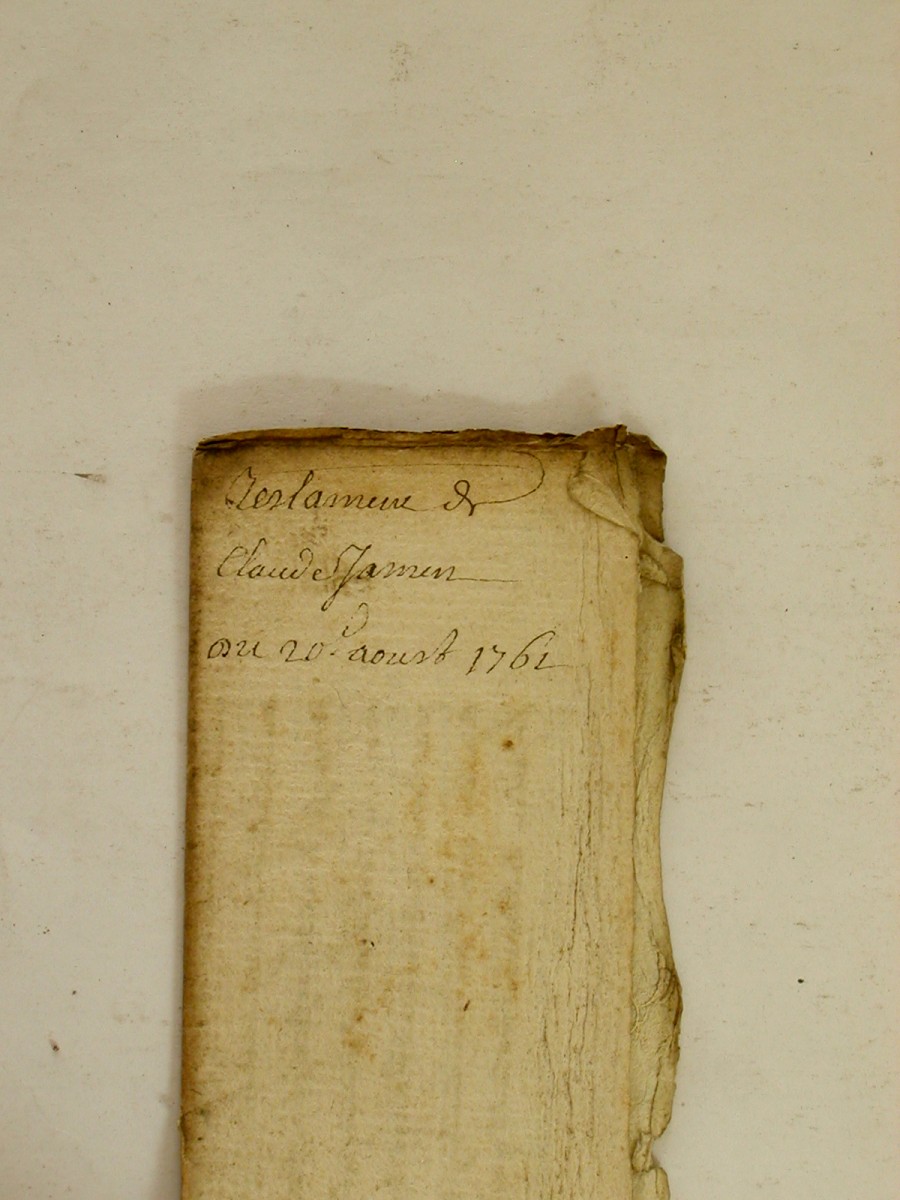 Testament de
Claude Jamen
du 20.d aoust 1761